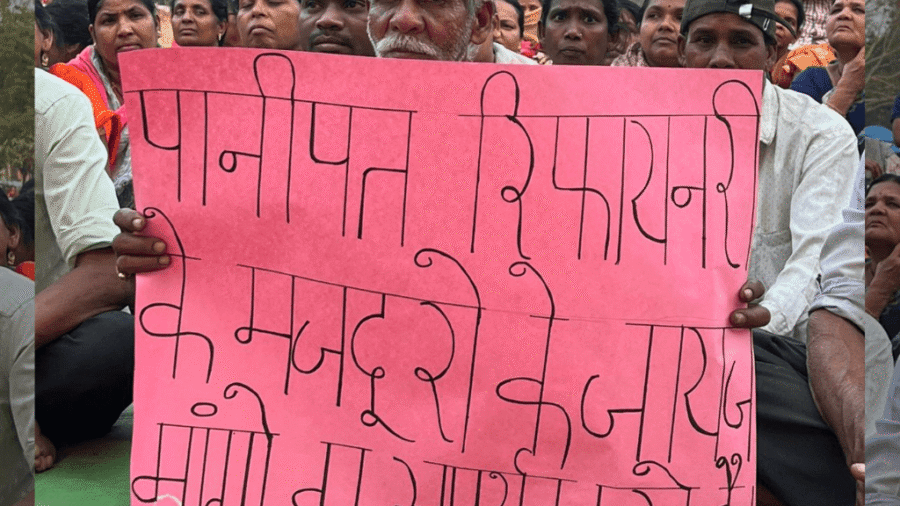 पानीपत रिफायनरी
के मजदूरो के जायज
मांगो